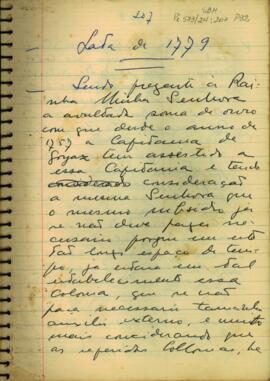 227
Lata de 1779
Sendo presente à Rai-
nha Minha Senhora
a avultada soma de ouro
com que desde o anno de
1757 a Capitania de
Goyaz tem assestido a
essa Capitania e tendo
consideração
a mesma Senhora que
o mesmo subsidio já
se não deve fazer ne-
cessario porque em este
tão longo espaço de tem-
po, já estará em tal
estabelecimento essa
Colonia, que se não
faz necessario
auxilio externo, e muito
mais considerando que
as referidas Collonias, he